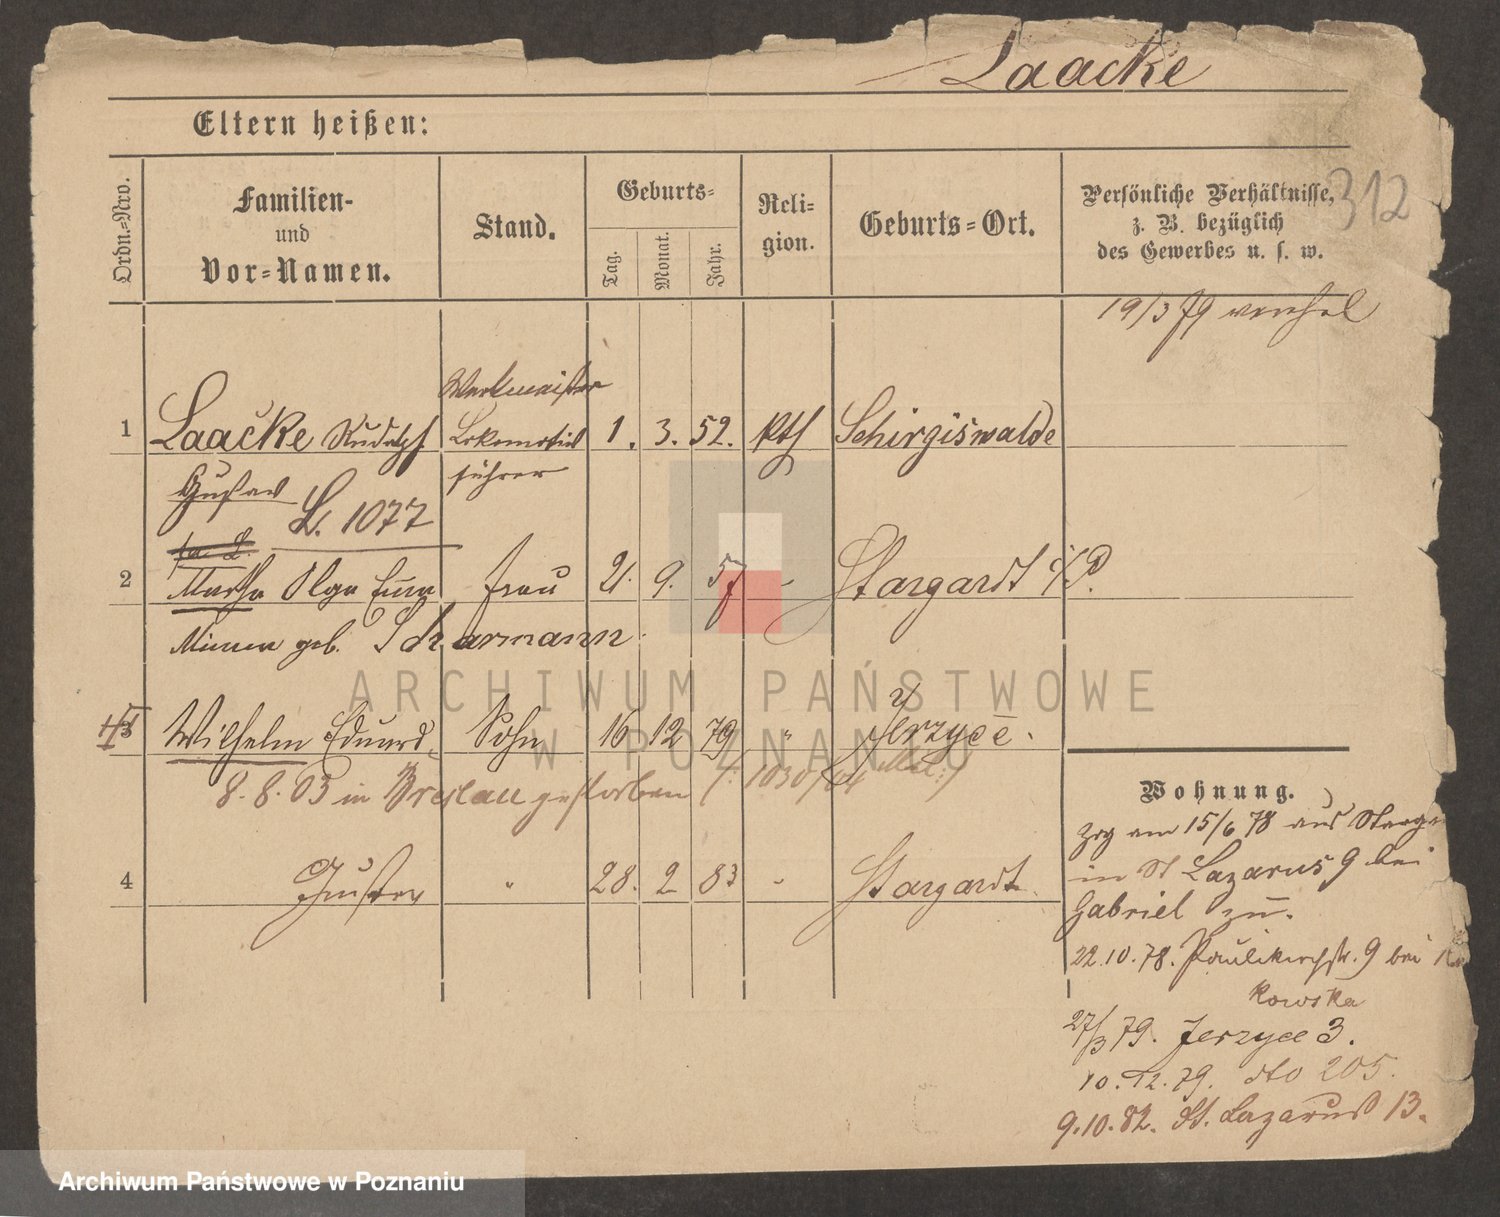 Laacke
Eltern heißen:
Ordn.-Nro.
Familien-
und
Vor-Namen.
Stand.
Geburts-
Tag.
Monat.
Jahr.
Reli-
gion.
Geburts-Ort.
Persönliche Verhältnisse,
z. B. bezüglich
des Gewerbes u. s. w.
312
19/3 79
Werkmeister
1 Laacke Rudolph Lokomotiv 1. 3. 52. kth Schirgiswalde
Gustav führer
L. 1077
2 Martha Olga Emma Frau 21. 9. 57 Stargardt i/P.
Minna geb. Scharmann
3 Wilhelm Eduard Sohn 16 12 79 " Jerzyce.
8.8.03 in Breslau gestorben 1030/04
4 Gustav " 28. 2 83 " Stargardt
Wohnung.
zog am 15/6 78 aus
in St Lazarus 9 bei
Gabriel zu.
22.10.78. Paulikirchstr. 9 bei
kowska
27/3 79. Jerzyce 3.
10.12.79. dto 205.
9.10.82. St. Lazarus 13.
ARCHIWUM PAŃSTWOWE
W POZNANIU
Archiwum Państwowe w Poznaniu